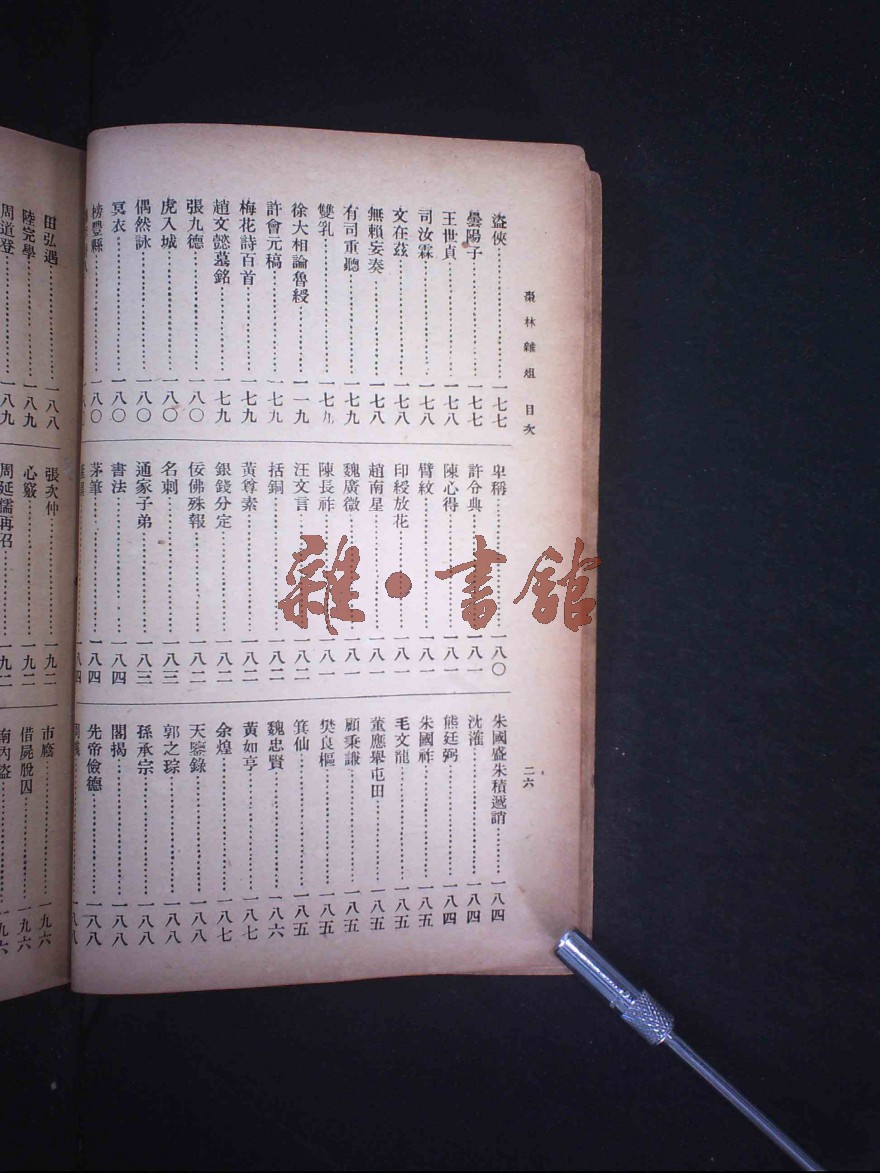 棗林雜俎 目次
二六
盜俠……一七七
曇陽子……一七七
王世貞……一七八
司汝霖……一七八
文在茲……一七八
無賴妄奏……一七八
有司重聽……一七九
雙乳……一七九
徐大相論魯綬……一一九
許會元稿……一七九
梅花詩百首……一七九
趙文懿墓銘……一七九
張九德……一八〇
虎入城……一八〇
偶然詠……一八〇
冥衣……一八〇
榜豐縣……一八〇
卑稱……一八〇
許令典……一八一
陳心得……一八一
臂紋……一八一
印綬放花……一八一
趙南星……一八一
魏廣微……一八一
陳長祚……一八一
汪文言……一八二
括銅……一八二
黃尊素……一八二
銀錢分定……一八二
佞佛殊報……一八二
名刺……一八三
通家子弟……一八三
書法……一八四
茅筆……一八四
朱國盛朱積遞誚……一八四
沈㴶……一八四
熊廷弼……一八四
朱國祚……一八五
毛文龍……一八五
董應舉屯田……一八五
顧秉謙……一八五
樊良樞……一八五
箕仙……一八五
魏忠賢……一八六
黃如亨……一八七
余煌……一八七
天鑒錄……一八八
郭之琮……一八八
孫承宗……一八八
閣揭……一八八
先帝儉德……一八八
田弘遇……一八八
陸完學……一八九
周道登……一八九
張次仲……一九二
心竅……一九二
周延儒再召……一九二
市廳……一九六
借屍脫囚……一九六
南內盜……一九六
雜·書館